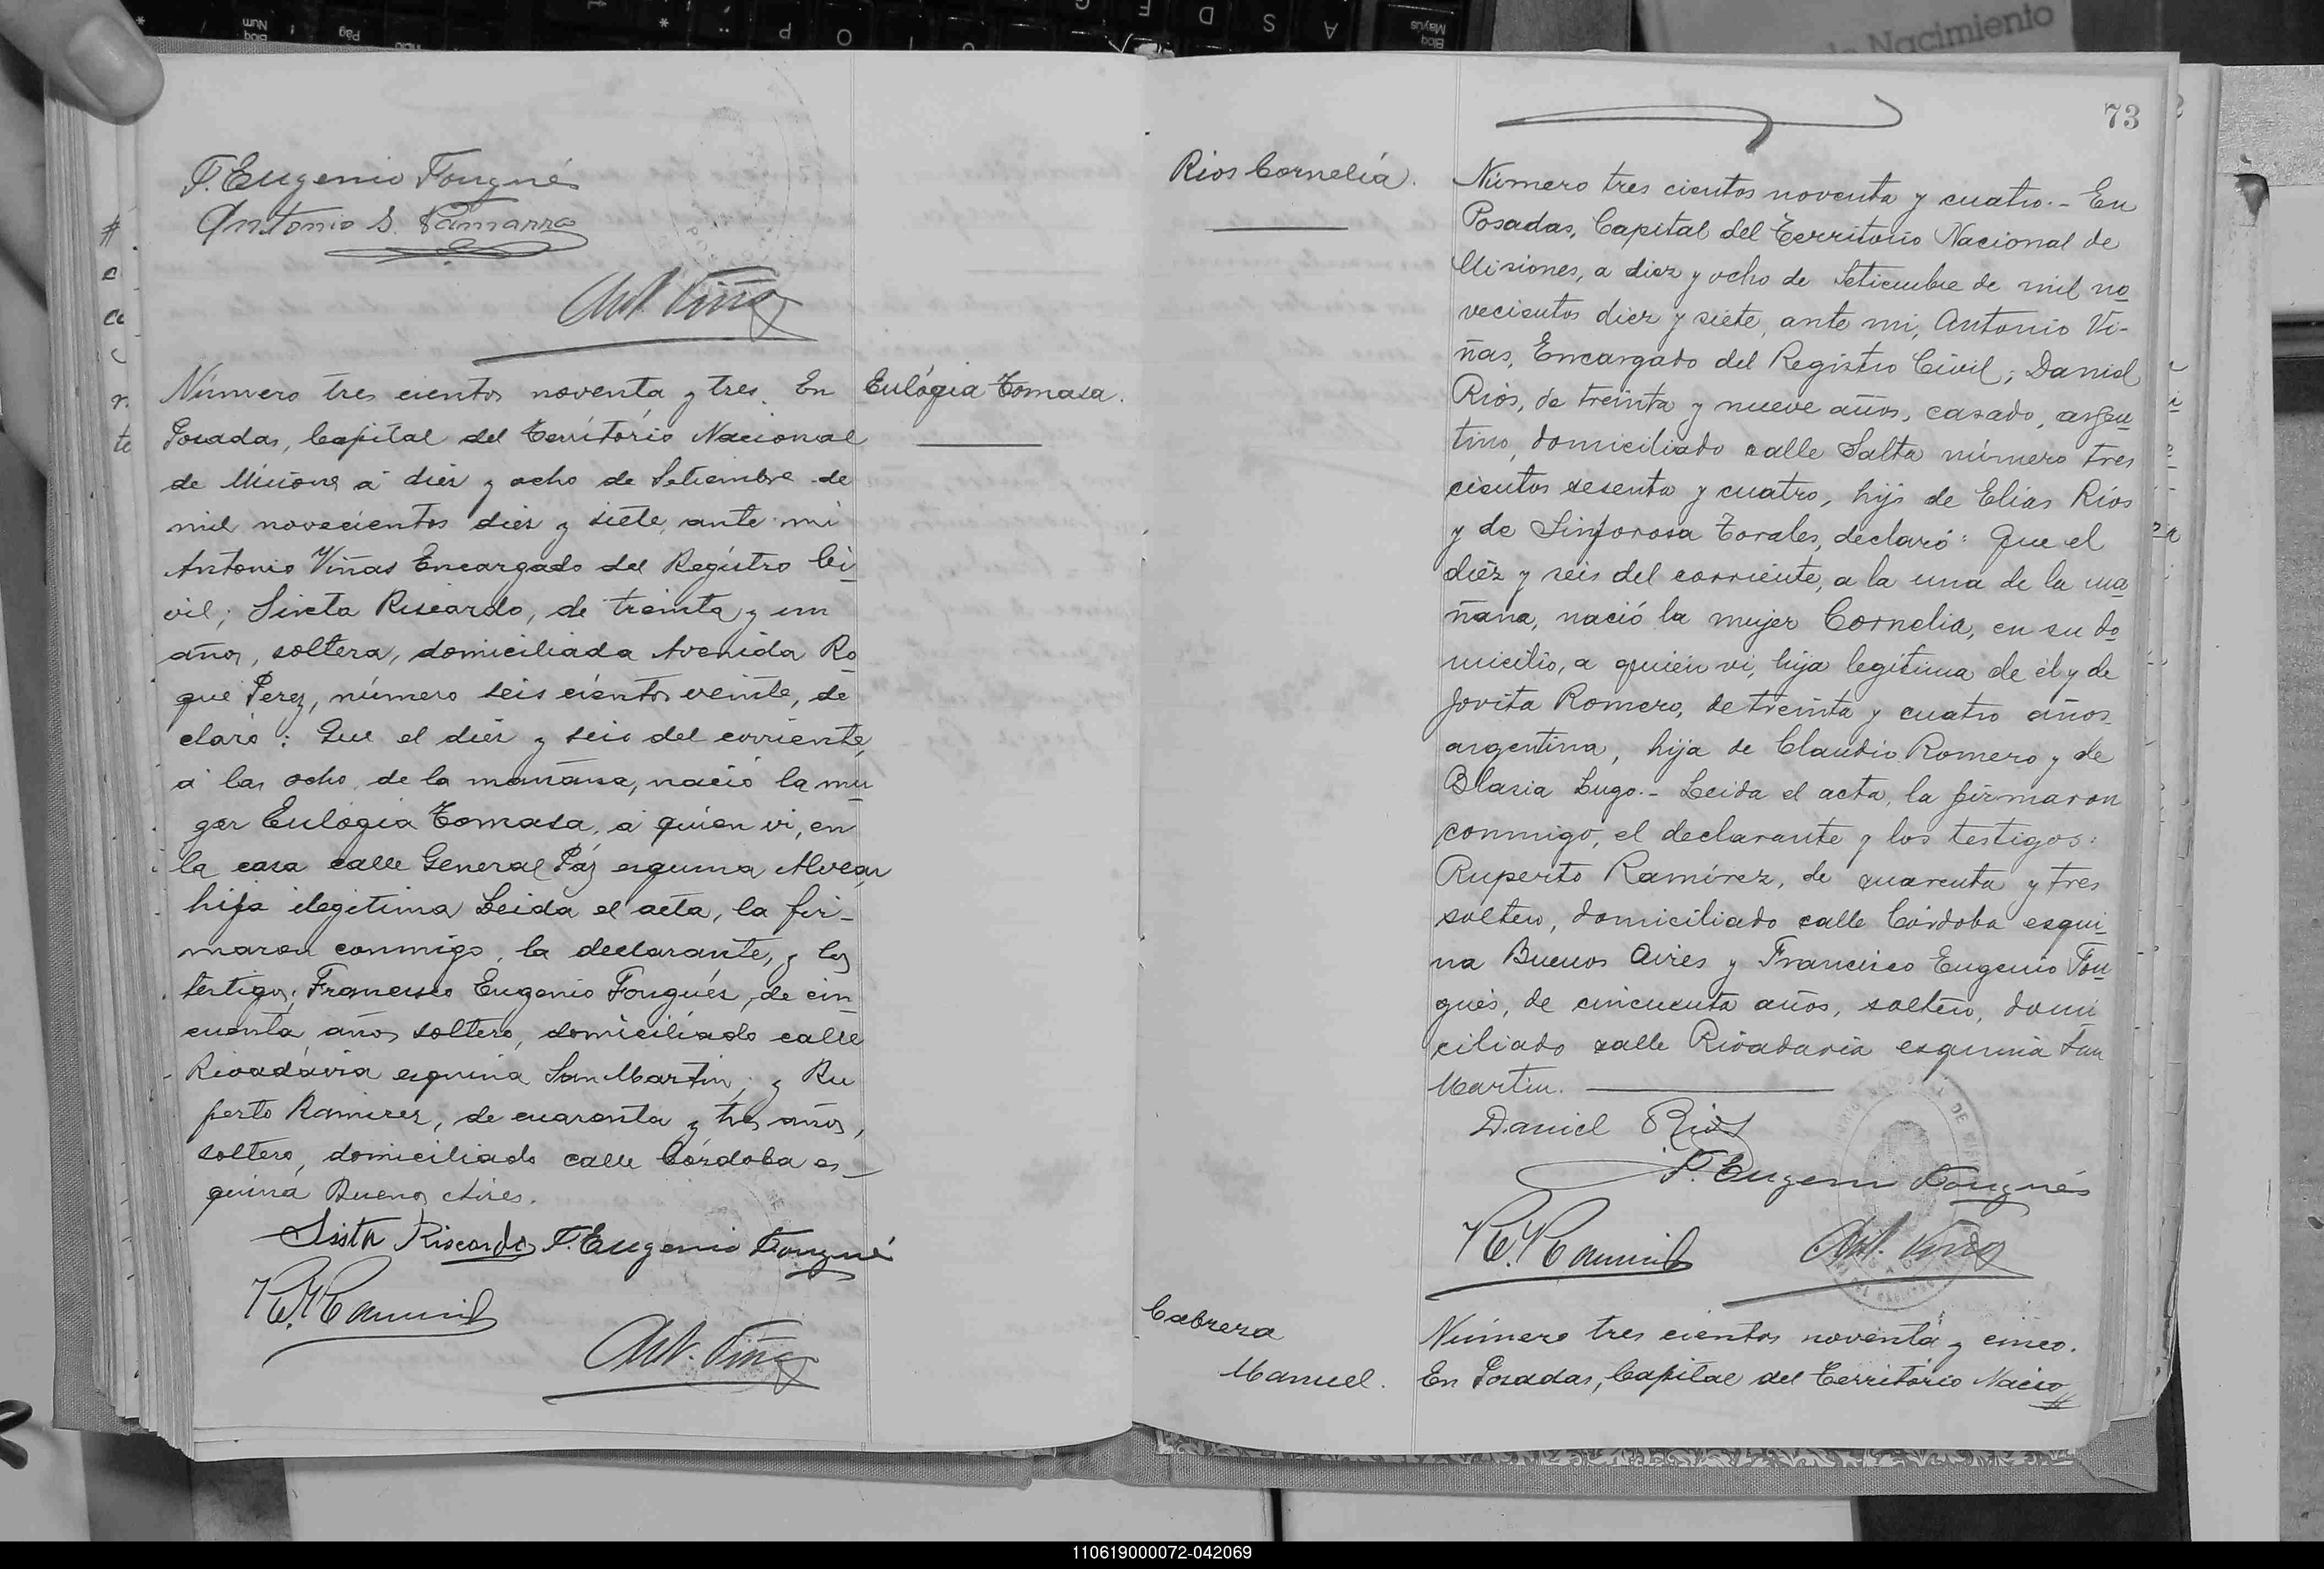 F. Eugenio Fougnés
Antonio S. Gamarra
Ant. Viñas
Número tres cientos noventa y tres. En
Posadas, Capital del Territorio Nacional
de Misiones á diez y ocho de Setiembre de
mil novecientos diez y siete, ante mi
Antonio Viñas Encargado del Registro Ci
vil; Sixta Riscardo, de treinta y un
años, soltera, domiciliada Avenida Ro
que Perez, número seis cientos veinte, de
claró: Que el diez y seis del corriente,
á las ocho de la mañana, nació la mu
ger Eulógia Tomasa, á quien vi, en
la casa calle General Páz esquina Alvear,
hija ilegítima Leida el acta, la fir-
maron conmigo, la declarante, y los
testigos; Francisco Eugenio Fougués, de cin
cuenta años soltero, domiciliado calle
Rivadávia esquina San Martin; y Ru
perto Ramirez, de cuarenta y tres años,
soltero, domiciliado calle Córdoba es
quina Buenos Aires.
Sista Riscardo F. Eugenio Fougné
R. Ramirez
Ant. Viñas
Eulógia Tomasa.
73
Rios Cornelia.
Número tres cientos noventa y cuatro.- En
Posadas, Capital del Territorio Nacional de
Misiones, a diez y ocho de Setiembre de mil no
vecientos diez y siete, ante mi, Antonio Vi-
ñas, Encargado del Registro Civil; Daniel
Rios, de treinta y nueve años, casado, argen
tino, domiciliado calle Salta número tres
cientos sesenta y cuatro, hijo de Elias Rios
y de Sinforosa Torales, declaró: Que el
diez y seis del corriente, a la una de la ma
ñana, nació la mujer Cornelia, en su do
micilio, a quien vi, hija legítima de él y de
Jovita Romero, de treinta y cuatro años
argentina, hija de Claudio Romero y de
Blasia Lugo.- Leida el acta, la firmaron
conmigo, el declarante y los testigos:
Ruperto Ramírez, de cuarenta y tres
soltero, domiciliado calle Córdoba esqui
na Buenos Aires y Francisco Eugenio Fou
gués, de cincuenta años, soltero, domi
ciliado calle Rivadavia esquina San
Martin.
Daniel Rios
F. Eugenio Fougnés
R. Ramirez
Ant. Viñas
Cabrera
Manuel.
Número tres cientos noventa y cinco.
En Posadas, Capital del Territorio Nacio
110619000072-042069